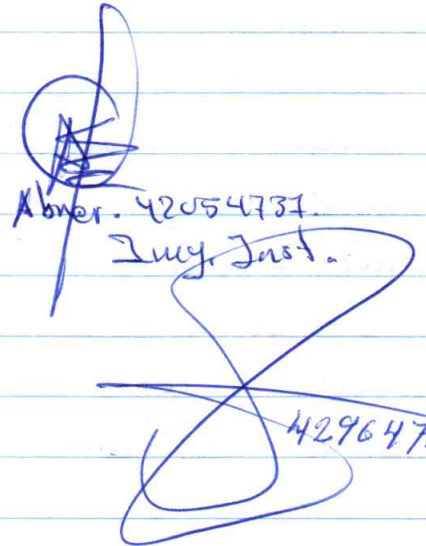 Abner. 42054737.
Ing. Inst.
429647